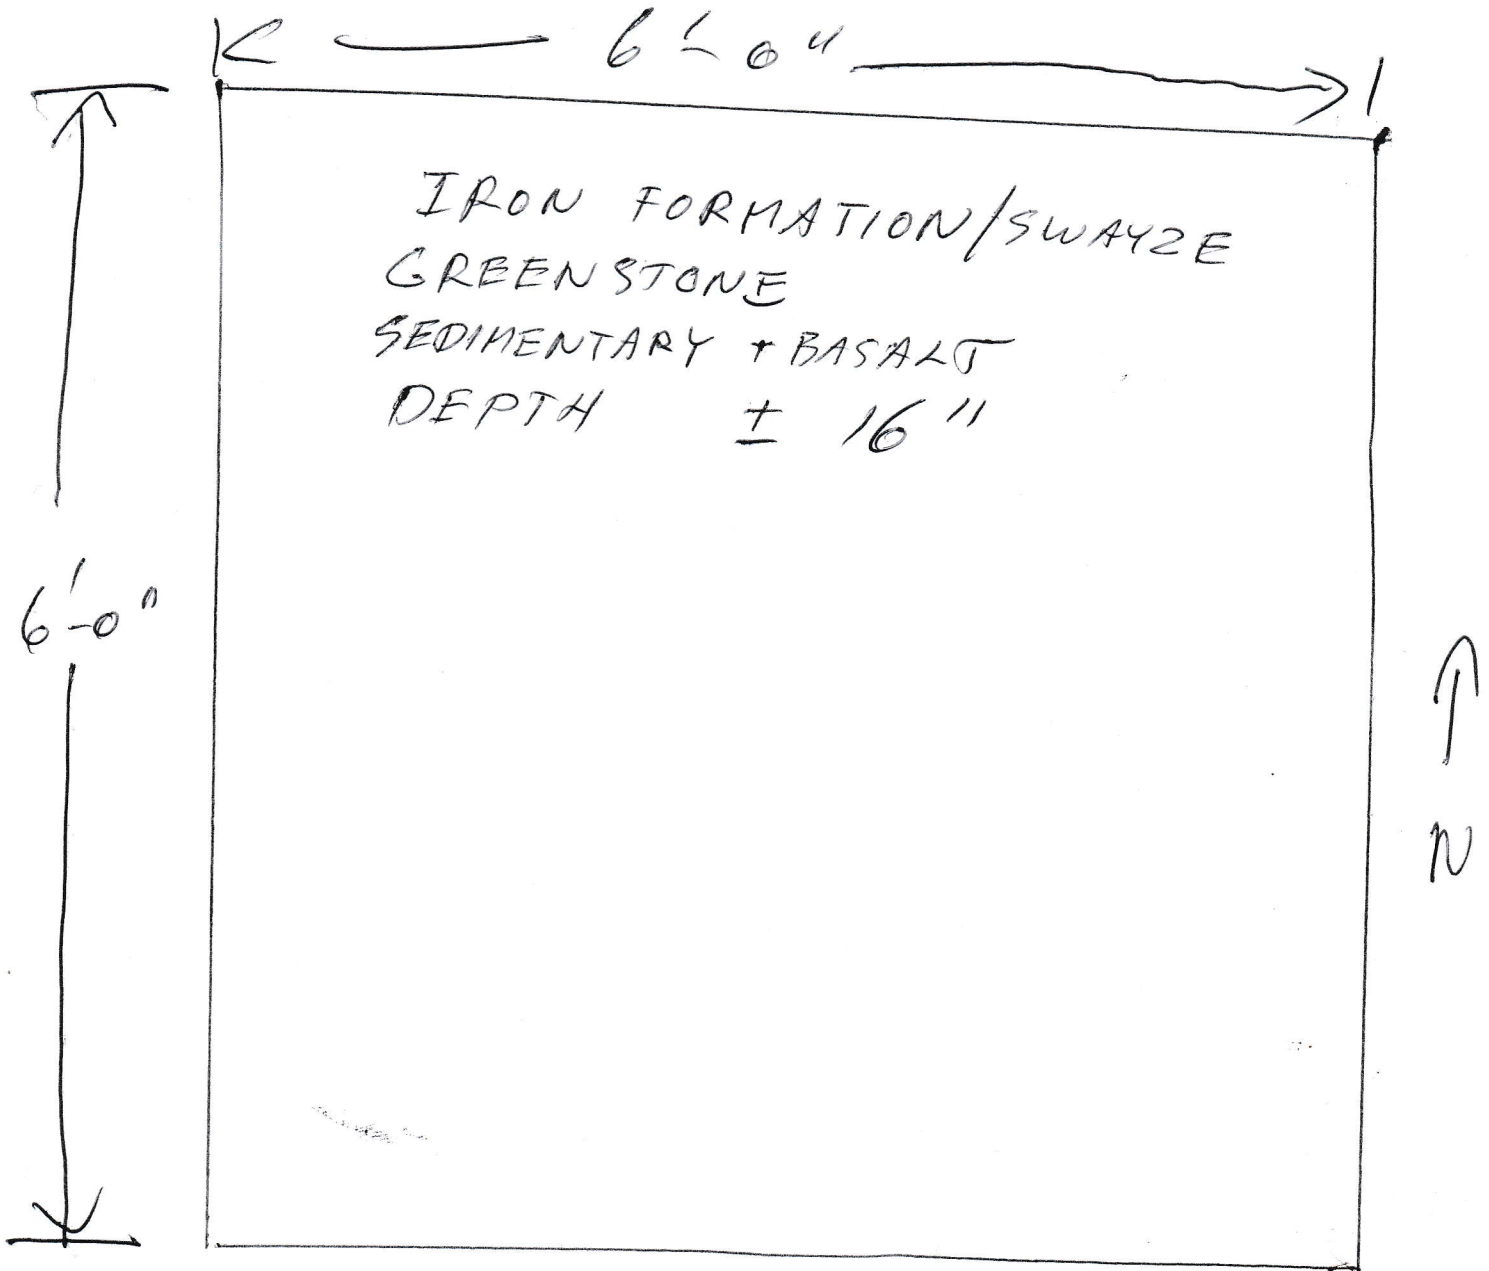 6'-0"
IRON FORMATION/SWAYZE
GREENSTONE
SEDIMENTARY + BASALT
DEPTH ± 16"
6'-0"
N